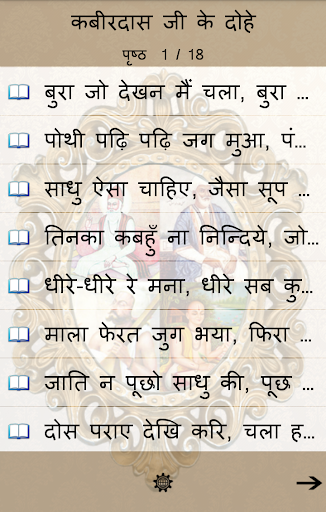 कबीरदास जी के दोहे
पृष्ठ 1 / 18
बुरा जो देखन मैं चला, बुरा ...
पोथी पढ़ि पढ़ि जग मुआ, पं...
साधु ऐसा चाहिए, जैसा सूप ...
तिनका कबहुँ ना निन्दिये, जो...
धीरे-धीरे रे मना, धीरे सब कु...
माला फेरत जुग भया, फिरा ...
जाति न पूछो साधु की, पूछ ...
दोस पराए देखि करि, चला ह...